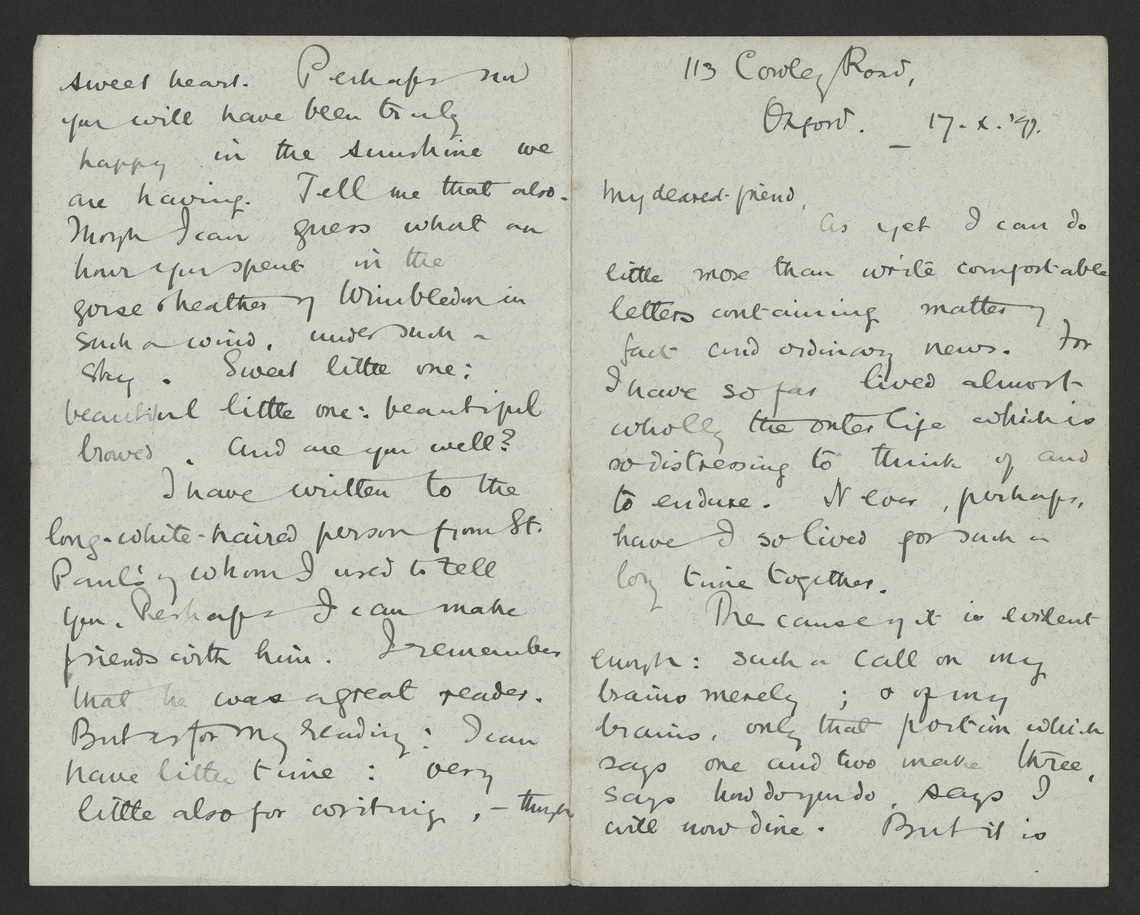 sweet heart. Perhaps now
you will have been truly
happy in the sunshine we
are having. Tell me that also.
Though I can guess what an
hour you spent in the
gorse & heather of Wimbledon in
such a wind, under such a
sky. Sweet little one:
beautiful little one: beautiful
browed. And are you well?
I have written to the
long-white-haired person from St.
Paul's of whom I used to tell
you. Perhaps I can make
friends with him. I remember
that he was a great reader.
But as for my reading: I can
have little time: very
little also for writing, - though
113 Cowley Road,
Oxford. 17. x. '97.
My dearest friend,
As yet I can do
little more than write comfortable
letters containing matter of
fact and ordinary news. For
I have so far lived almost
wholly the outer life which is
so distressing to think of and
to endure. Never, perhaps,
have I so lived for such a
long time together.
The cause of it is evident
enough: such a call on my
brains merely; & of my
brains, only that portion which
says one and two make three,
says how do you do, says I
will now dine. But it is